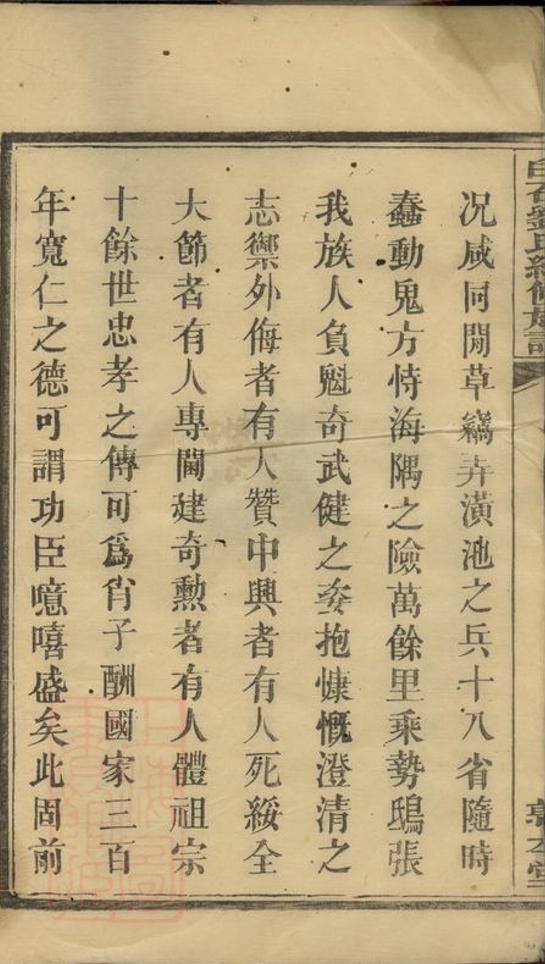 况咸同間草竊弄潢池之兵十八省隨時
蠢動鬼方恃海隅之險萬餘里乘勢鴟張
我族人負魁奇武健之姿抱慷慨澄清之
志禦外侮者有人贊中興者有人死綏全
大節者有人專閫建奇勲者有人體祖宗
十餘世忠孝之傳可爲肖子酬國家三百
年寬仁之德可謂功臣噫嘻盛矣此固前